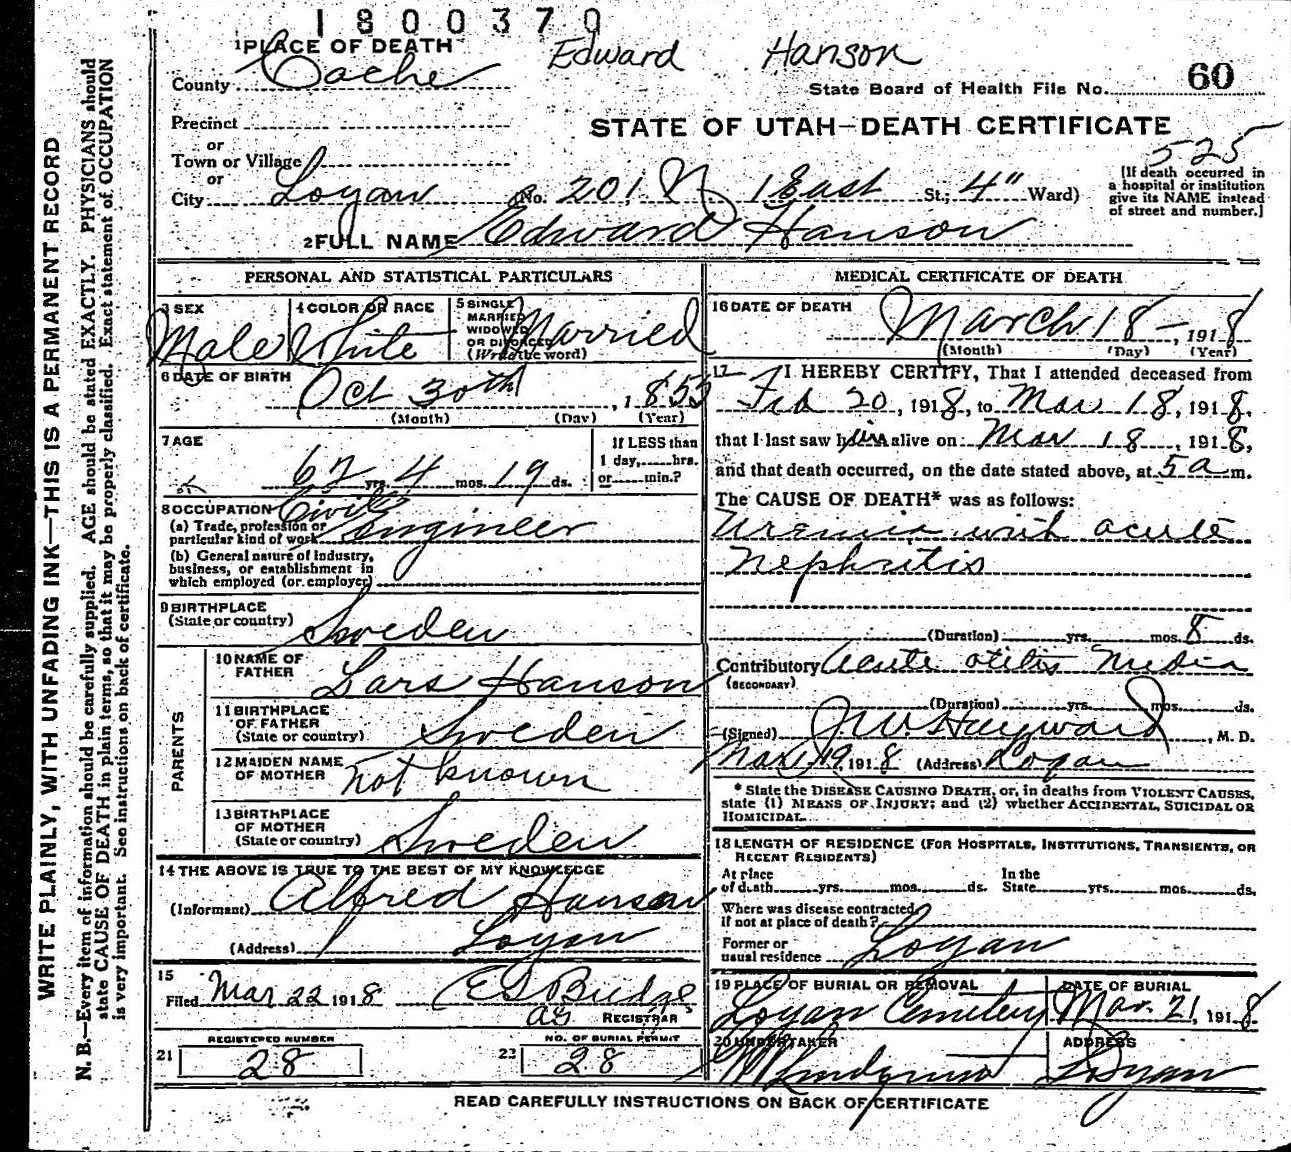 1800370
1 PLACE OF DEATH Edward Hanson
County Cache
State Board of Health File No. 60
Precinct
or
STATE OF UTAH—DEATH CERTIFICATE
Town or Village
or
525
City Logan (No. 201 N 1 East St.; 4" Ward)
[If death occurred in
a hospital or institution
give its NAME instead
of street and number.]
2 FULL NAME Edward Hanson
PERSONAL AND STATISTICAL PARTICULARS
3 SEX
Male
4 COLOR OR RACE
White
5 SINGLE
MARRIED
WIDOWED
OR DIVORCED
(Write the word)
Married
6 DATE OF BIRTH
Oct 30th, 1855
(Month) (Day) (Year)
7 AGE
62 yrs. 4 mos. 19 ds.
If LESS than
1 day,......hrs.
or......min.?
8 OCCUPATION Civil
(a) Trade, profession or
particular kind of work Engineer
(b) General nature of industry,
business, or establishment in
which employed (or employer)
9 BIRTHPLACE
(State or country)
Sweden
PARENTS
10 NAME OF
FATHER
Lars Hanson
11 BIRTHPLACE
OF FATHER
(State or country) Sweden
12 MAIDEN NAME
OF MOTHER not known
13 BIRTHPLACE
OF MOTHER
(State or country) Sweden
14 THE ABOVE IS TRUE TO THE BEST OF MY KNOWLEDGE
(Informant) Alfred Hanson
(Address) Logan
15
Filed Mar 22 1918
REGISTRAR
REGISTERED NUMBER
21 28
NO. OF BURIAL PERMIT
22 28
MEDICAL CERTIFICATE OF DEATH
16 DATE OF DEATH
March 18—, 1918
(Month) (Day) (Year)
17 I HEREBY CERTIFY, That I attended deceased from
Feb 20, 1918, to Mar 18, 1918,
that I last saw him alive on Mar 18, 1918,
and that death occurred, on the date stated above, at 5 a m.
The CAUSE OF DEATH* was as follows:
Uremia with acute
nephritis
(Duration) yrs. mos. 8 ds.
Contributory Acute otitis Media
(SECONDARY)
(Duration) yrs. mos. ds.
(Signed) J. W. Hayward, M. D.
Mar 19, 1918 (Address) Logan
* State the DISEASE CAUSING DEATH, or, in deaths from VIOLENT CAUSES,
state (1) MEANS OF INJURY; and (2) whether ACCIDENTAL, SUICIDAL OR
HOMICIDAL.
18 LENGTH OF RESIDENCE (FOR HOSPITALS, INSTITUTIONS, TRANSIENTS, OR
RECENT RESIDENTS)
At place In the
of death yrs. mos. ds. State yrs. mos. ds.
Where was disease contracted,
if not at place of death?
Former or
usual residence Logan
19 PLACE OF BURIAL OR REMOVAL
Logan Cemetery
DATE OF BURIAL
Mar. 21, 1918
20 UNDERTAKER
ADDRESS
Logan
READ CAREFULLY INSTRUCTIONS ON BACK OF CERTIFICATE
WRITE PLAINLY, WITH UNFADING INK—THIS IS A PERMANENT RECORD
N. B.—Every item of information should be carefully supplied. AGE should be stated EXACTLY. PHYSICIANS should
state CAUSE OF DEATH in plain terms, so that it may be properly classified. Exact statement of OCCUPATION
is very important. See instructions on back of certificate.